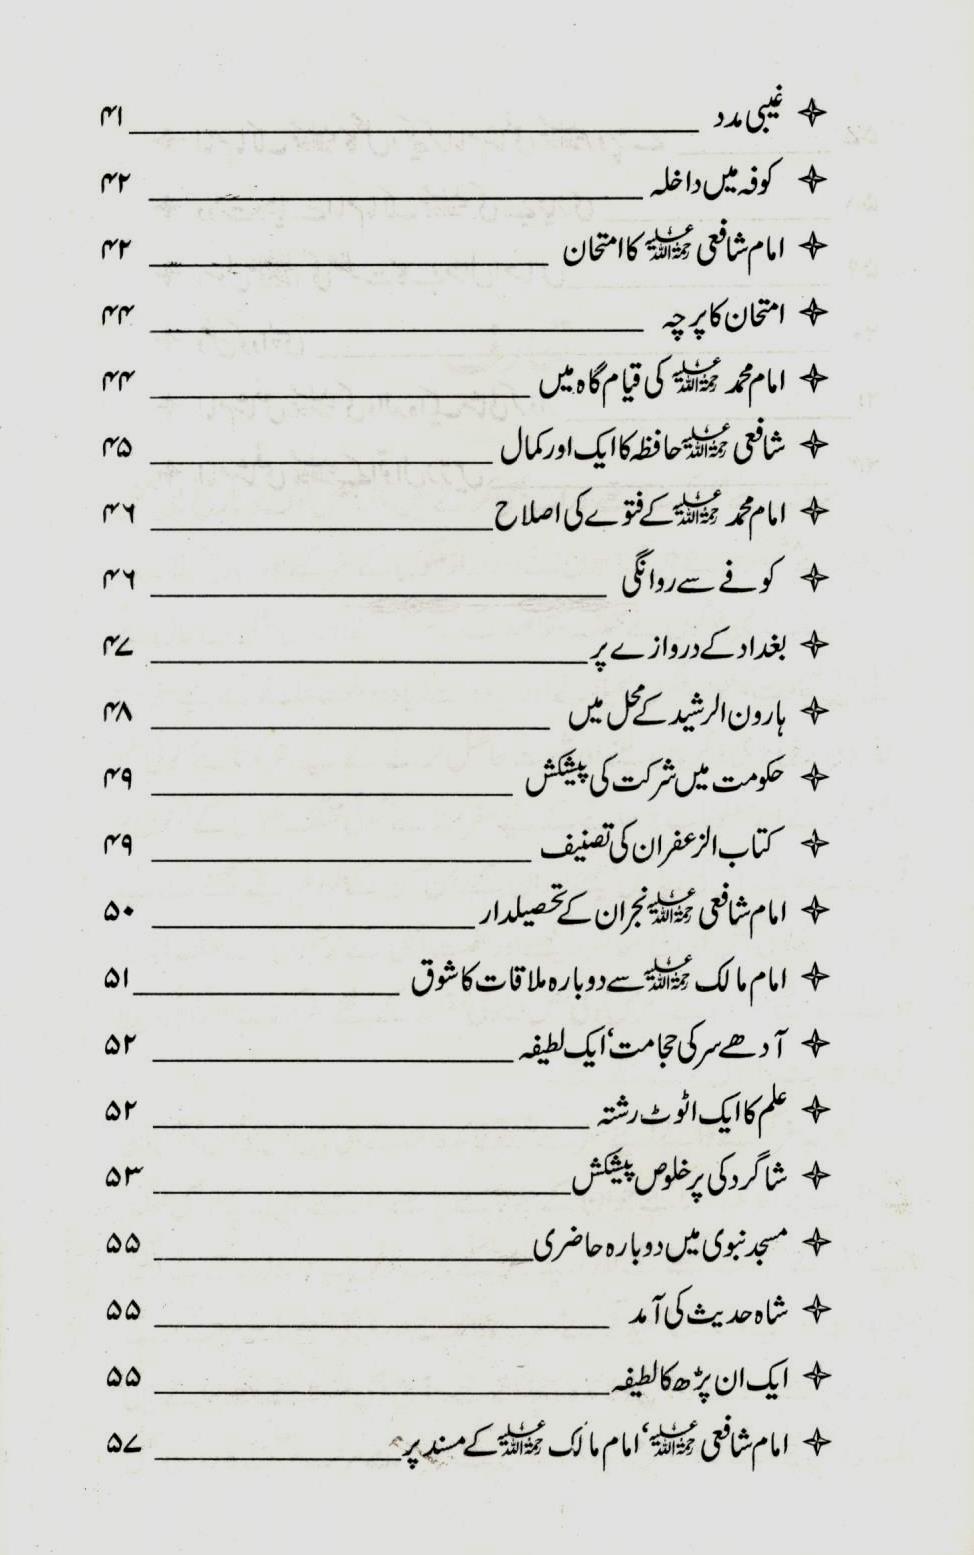 غیبی مدد ۴۱
کوفہ میں داخلہ ۴۲
امام شافعی رحمۃ اللہ علیہ کا امتحان ۴۲
امتحان کا پرچہ ۴۴
امام محمد رحمۃ اللہ علیہ کی قیام گاہ میں ۴۴
شافعی رحمۃ اللہ علیہ حافظہ کا ایک اور کمال ۴۵
امام محمد رحمۃ اللہ علیہ کے فتوے کی اصلاح ۴۶
کوفے سے روانگی ۴۶
بغداد کے دروازے پر ۴۷
ہارون الرشید کے محل میں ۴۸
حکومت میں شرکت کی پیشکش ۴۹
کتاب الزعفران کی تصنیف ۴۹
امام شافعی رحمۃ اللہ علیہ نجران کے تحصیلدار ۵۰
امام مالک رحمۃ اللہ علیہ سے دوبارہ ملاقات کا شوق ۵۱
آدھے سر کی حجامت، ایک لطیفہ ۵۲
علم کا ایک اٹوٹ رشتہ ۵۲
شاگرد کی پرخلوص پیشکش ۵۳
مسجد نبوی میں دوبارہ حاضری ۵۵
شاہ حدیث کی آمد ۵۵
ایک ان پڑھ کا لطیفہ ۵۵
امام شافعی رحمۃ اللہ علیہ، امام مالک رحمۃ اللہ علیہ کے مسند پر ۵۷